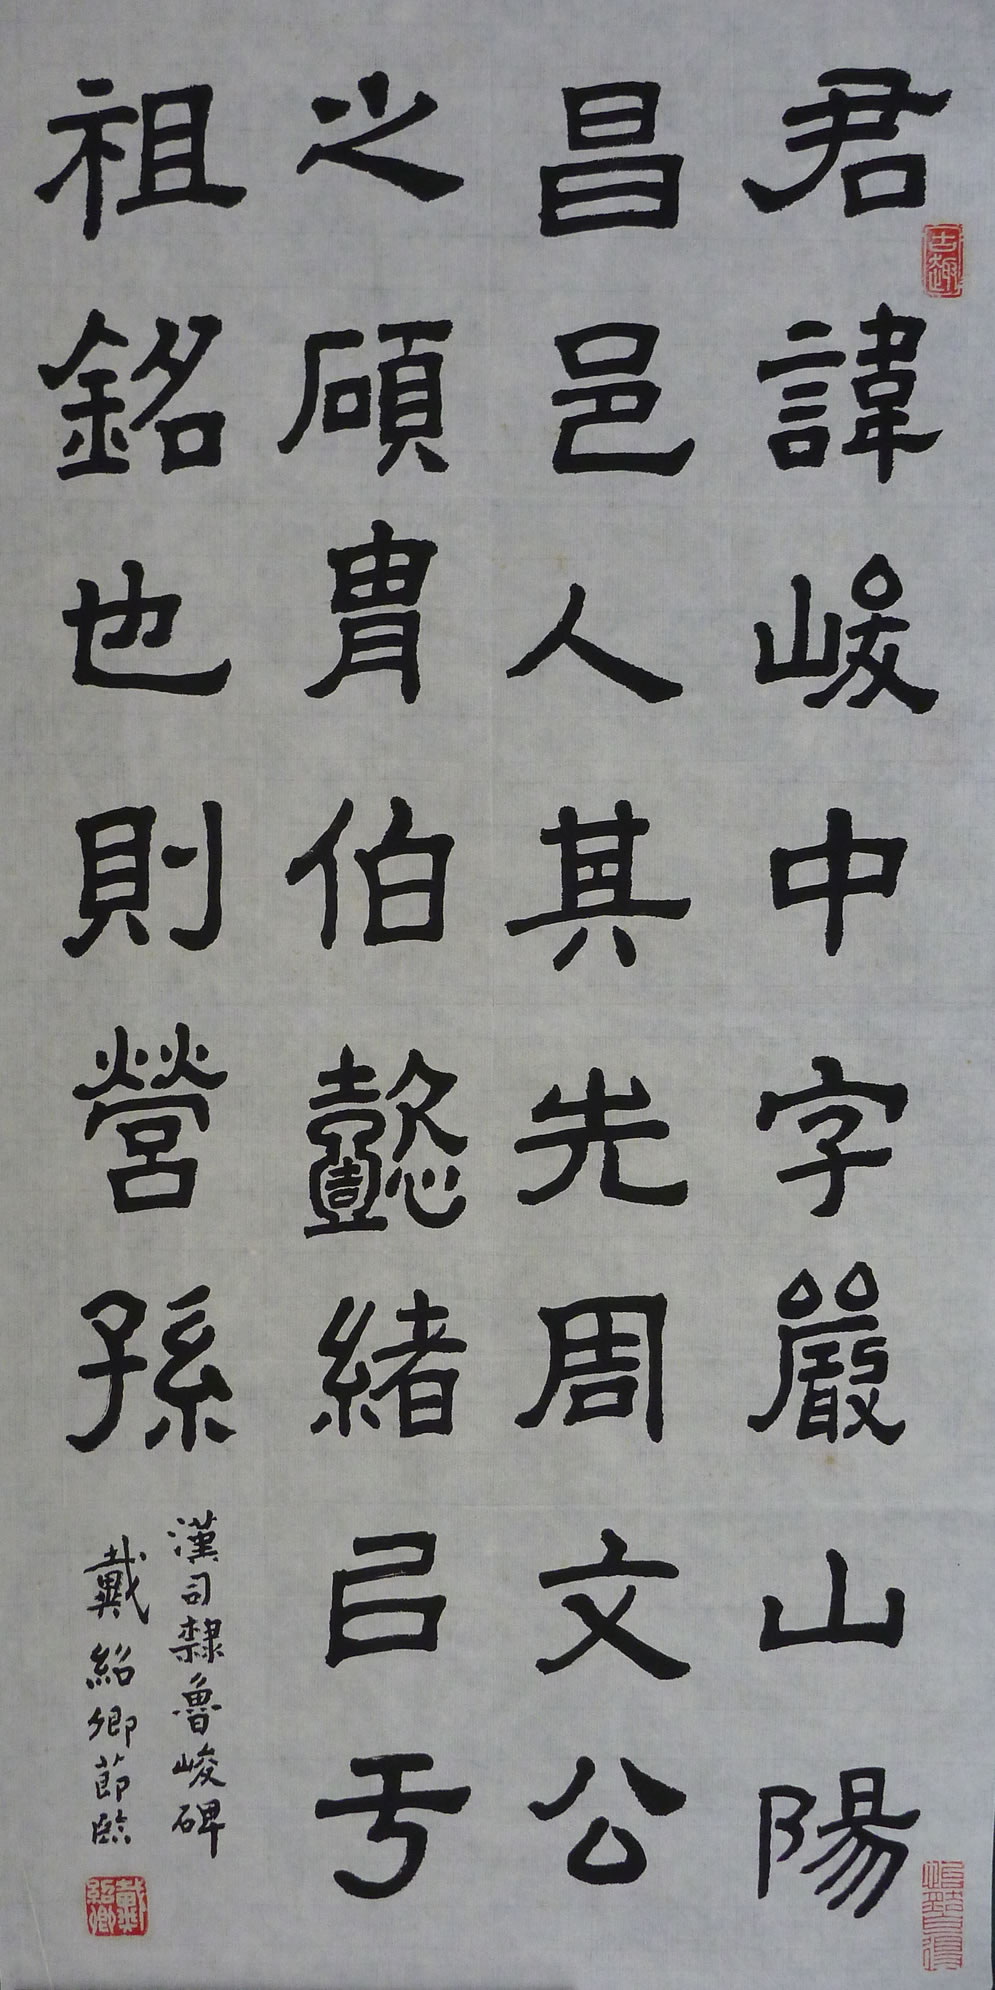 君諱峻中字嚴山陽
昌邑人其先周文公
之碩胄伯懿緒㠯于
祖銘也則營孫
漢司隸魯峻碑
戴紹卿節臨
古趣
戴紹卿